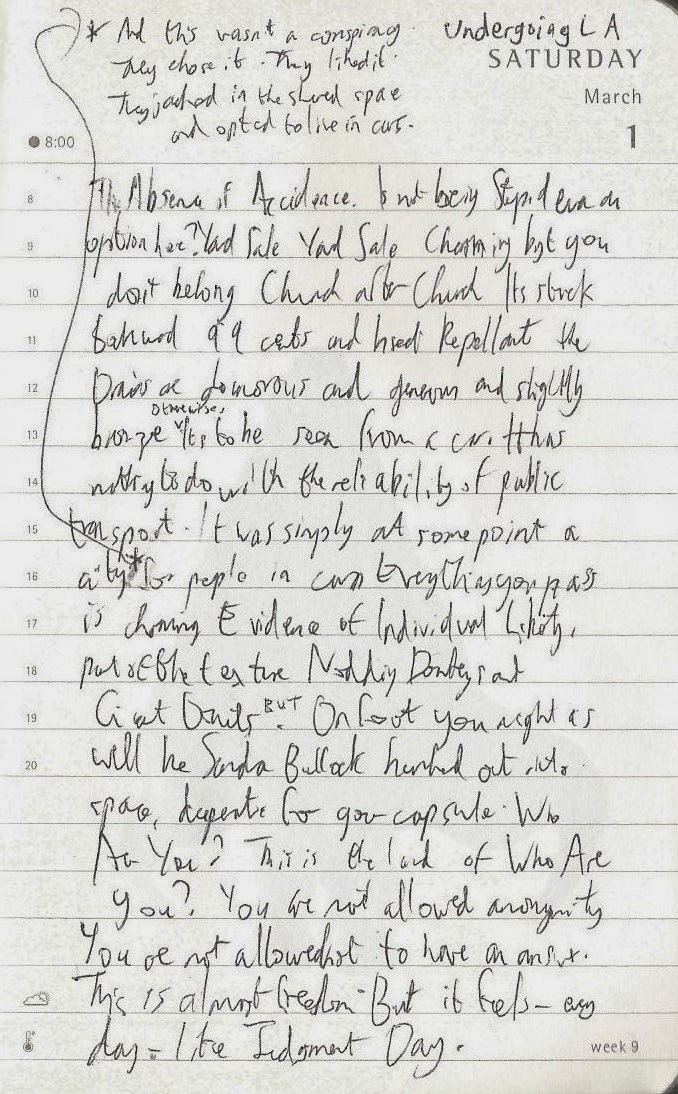 * And this wasn't a conspiracy.
Undergoing LA
They chose it. They liked it.
SATURDAY
They in the shared space
March
and opted to live in cars.
1
8:00
8 The Absence of Accidence. Is not being Stupid even an
9 option here? Yard Sale Yard Sale Charming but you
10 don't belong Church after Church Its stuck
11 99 cents and Insect Repellant the
12 are and generous and slightly
otherwise,
13 Its to be seen from a car. It has
14 nothing to do with the reliability of public
15 transport. It was simply at some point a
16 city* for people in cars Everything you pass
17 is charming Evidence of Individual Liberty,
18 part of the texture Nodding Donkeys and
19 Giant Donuts BUT. On foot you might as
20 well be Sandra Bullock hurled out into
space, desperate for your capsule. Who
Are You? This is the land of Who Are
you? You are not allowed anonymity
You are not allowed not to have an answer.
This is almost freedom. But it feels – every
day – like Judgment Day.
week 9